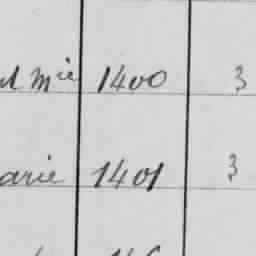 Mie 1400 3
arie 1401 3